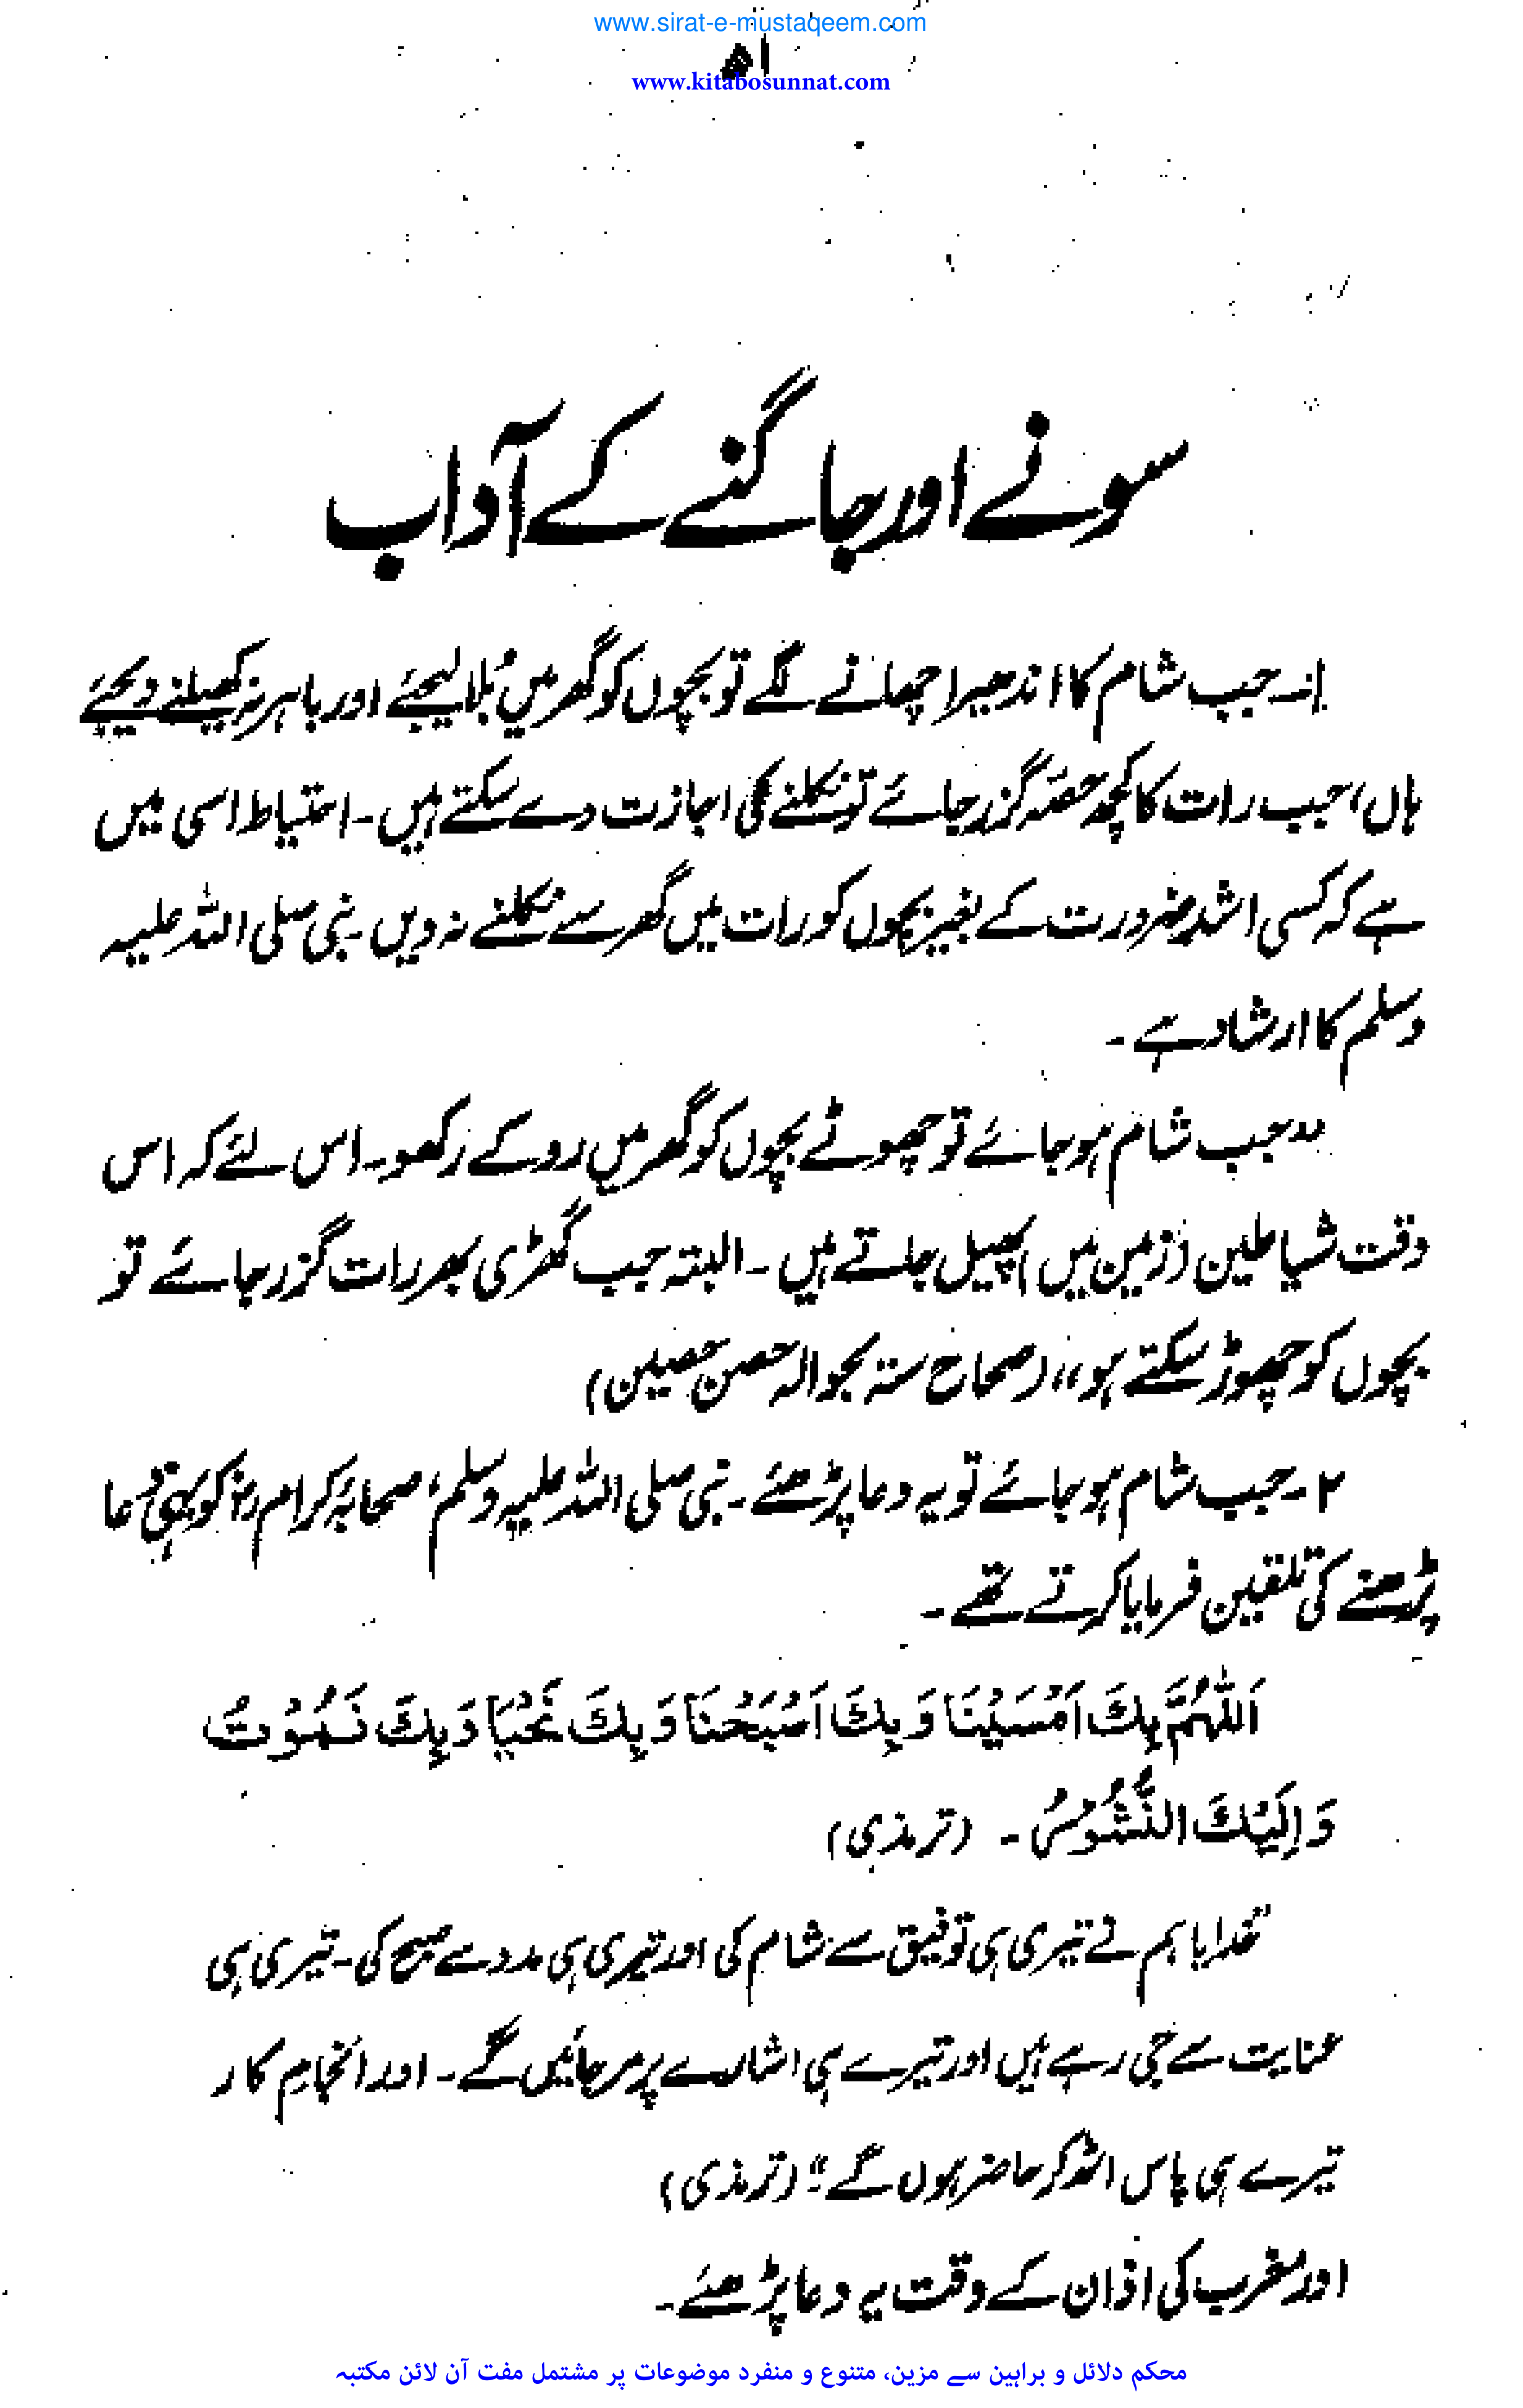 www.sirat-e-mustaqeem.com
۵۱
www.kitabosunnat.com
سونے اور جاگنے کے آداب
۱۔ جب شام کا اندھیرا چھانے لگے تو بچّوں کو گھر میں بُلا لیجئے اور باہر نہ کھیلنے دیجئے
ہاں، جب رات کا کچھ حصّہ گزر جائے تو نکلنے کی اجازت دے سکتے ہیں۔ احتیاط اسی میں
ہے کہ کسی اشد ضرورت کے بغیر بچوں کو رات میں گھر سے نکلنے نہ دیں۔ نبی صلی اللہ علیہ
وسلم کا ارشاد ہے۔
”جب شام ہو جائے تو چھوٹے بچّوں کو گھر میں روکے رکھو۔ اس لئے کہ اس
وقت شیاطین (زمین میں) پھیل جاتے ہیں۔ البتہ جب گھڑی بھر رات گزر جائے تو
بچّوں کو چھوڑ سکتے ہو“ (صحاح ستہ بحوالہ حصن حصین)
۲۔ جب شام ہو جائے تو یہ دعا پڑھئے۔ نبی صلی اللہ علیہ وسلم، صحابۂ کرام رضؓ کو یہی دُعا
پڑھنے کی تلقین فرمایا کرتے تھے۔
اَللّٰهُمَّ بِكَ اَمْسَيْنَا وَ بِكَ اَصْبَحْنَا وَ بِكَ نَحْيَا وَ بِكَ نَمُوْتُ
وَ اِلَيْكَ النُّشُوْرُ۔ (ترمذی)
”خدایا ہم نے تیری ہی توفیق سے شام کی اور تیری ہی مدد سے صبح کی۔ تیری ہی
عنایت سے جی رہے ہیں اور تیرے ہی اشارے پر مر جائیں گے۔ اور انجامِ کار
تیرے ہی پاس اٹھ کر حاضر ہوں گے۔“ (ترمذی)
اور مغرب کی اذان کے وقت یہ دعا پڑھئے۔
محکم دلائل و براہین سے مزین، متنوع و منفرد موضوعات پر مشتمل مفت آن لائن مکتبہ